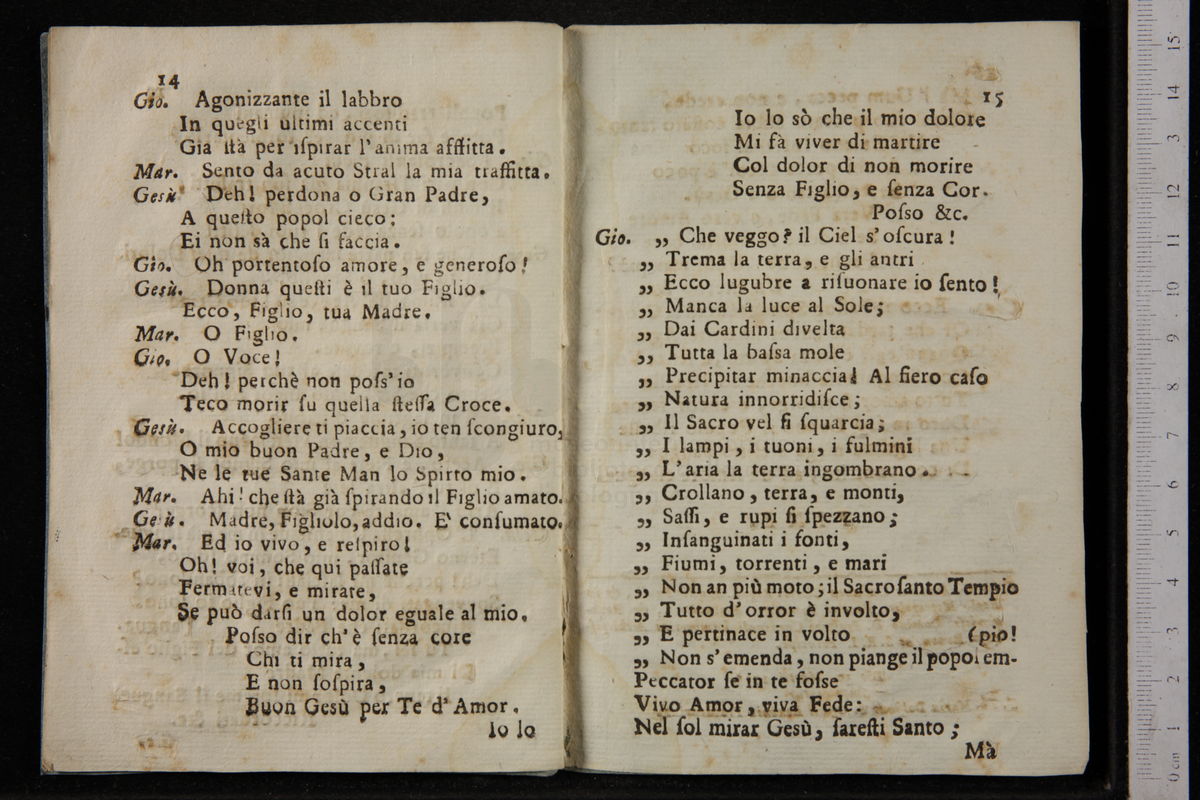 14
Gio. Agonizzante il labbro
In quegli ultimi accenti
Gia ſtà per iſpirar l'anima afflitta.
Mar. Sento da acuto Stral la mia traffitta.
Gesù Deh! perdona o Gran Padre,
A queſto popol cieco:
Ei non sà che ſi faccia.
Gio. Oh portentoſo amore, e generoſo!
Gesù. Donna queſti è il tuo Figlio.
Ecco, Figlio, tua Madre.
Mar. O Figlio.
Gio. O Voce!
Deh! perchè non poſs'io
Teco morir ſu quella ſteſſa Croce.
Gesù. Accogliere ti piaccia, io ten ſcongiuro,
O mio buon Padre, e Dio,
Ne le tue Sante Man lo Spirto mio.
Mar. Ahi! che ſtà già ſpirando il Figlio amato.
Gesù. Madre, Figliolo, addio. E' conſumato.
Mar. Ed io vivo, e reſpiro!
Oh! voi, che qui paſſate
Fermatevi, e mirate,
Se può darſi un dolor eguale al mio.
Poſso dir ch'è ſenza core
Chi ti mira,
E non ſoſpira,
Buon Gesù per Te d'Amor.
Io lo
15
Io lo sò che il mio dolore
Mi fà viver di martire
Col dolor di non morire
Senza Figlio, e ſenza Cor.
Poſso &c.
Gio. „ Che veggo? il Ciel s'oſcura!
„ Trema la terra, e gli antri
„ Ecco lugubre a riſuonare io ſento!
„ Manca la luce al Sole;
„ Dai Cardini divelta
„ Tutta la baſsa mole
„ Precipitar minaccia! Al fiero caſo
„ Natura innorridiſce;
„ Il Sacro vel ſi ſquarcia;
„ I lampi, i tuoni, i fulmini
„ L'aria la terra ingombrano.
„ Crollano, terra, e monti,
„ Saſſi, e rupi ſi ſpezzano;
„ Inſanguinati i fonti,
„ Fiumi, torrenti, e mari
„ Non an più moto; il Sacroſanto Tempio
„ Tutto d'orror è involto,
„ E pertinace in volto (pio!
„ Non s'emenda, non piange il popol em-
Peccator ſe in te foſse
Vivo Amor, viva Fede:
Nel ſol mirar Gesù, ſareſti Santo;
Mà
0 cm 1 2 3 4 5 6 7 8 9 10 11 12 13 14 15